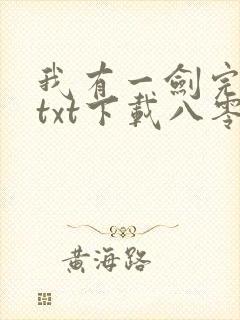 我有一劍完
txt下載八零
黃海路